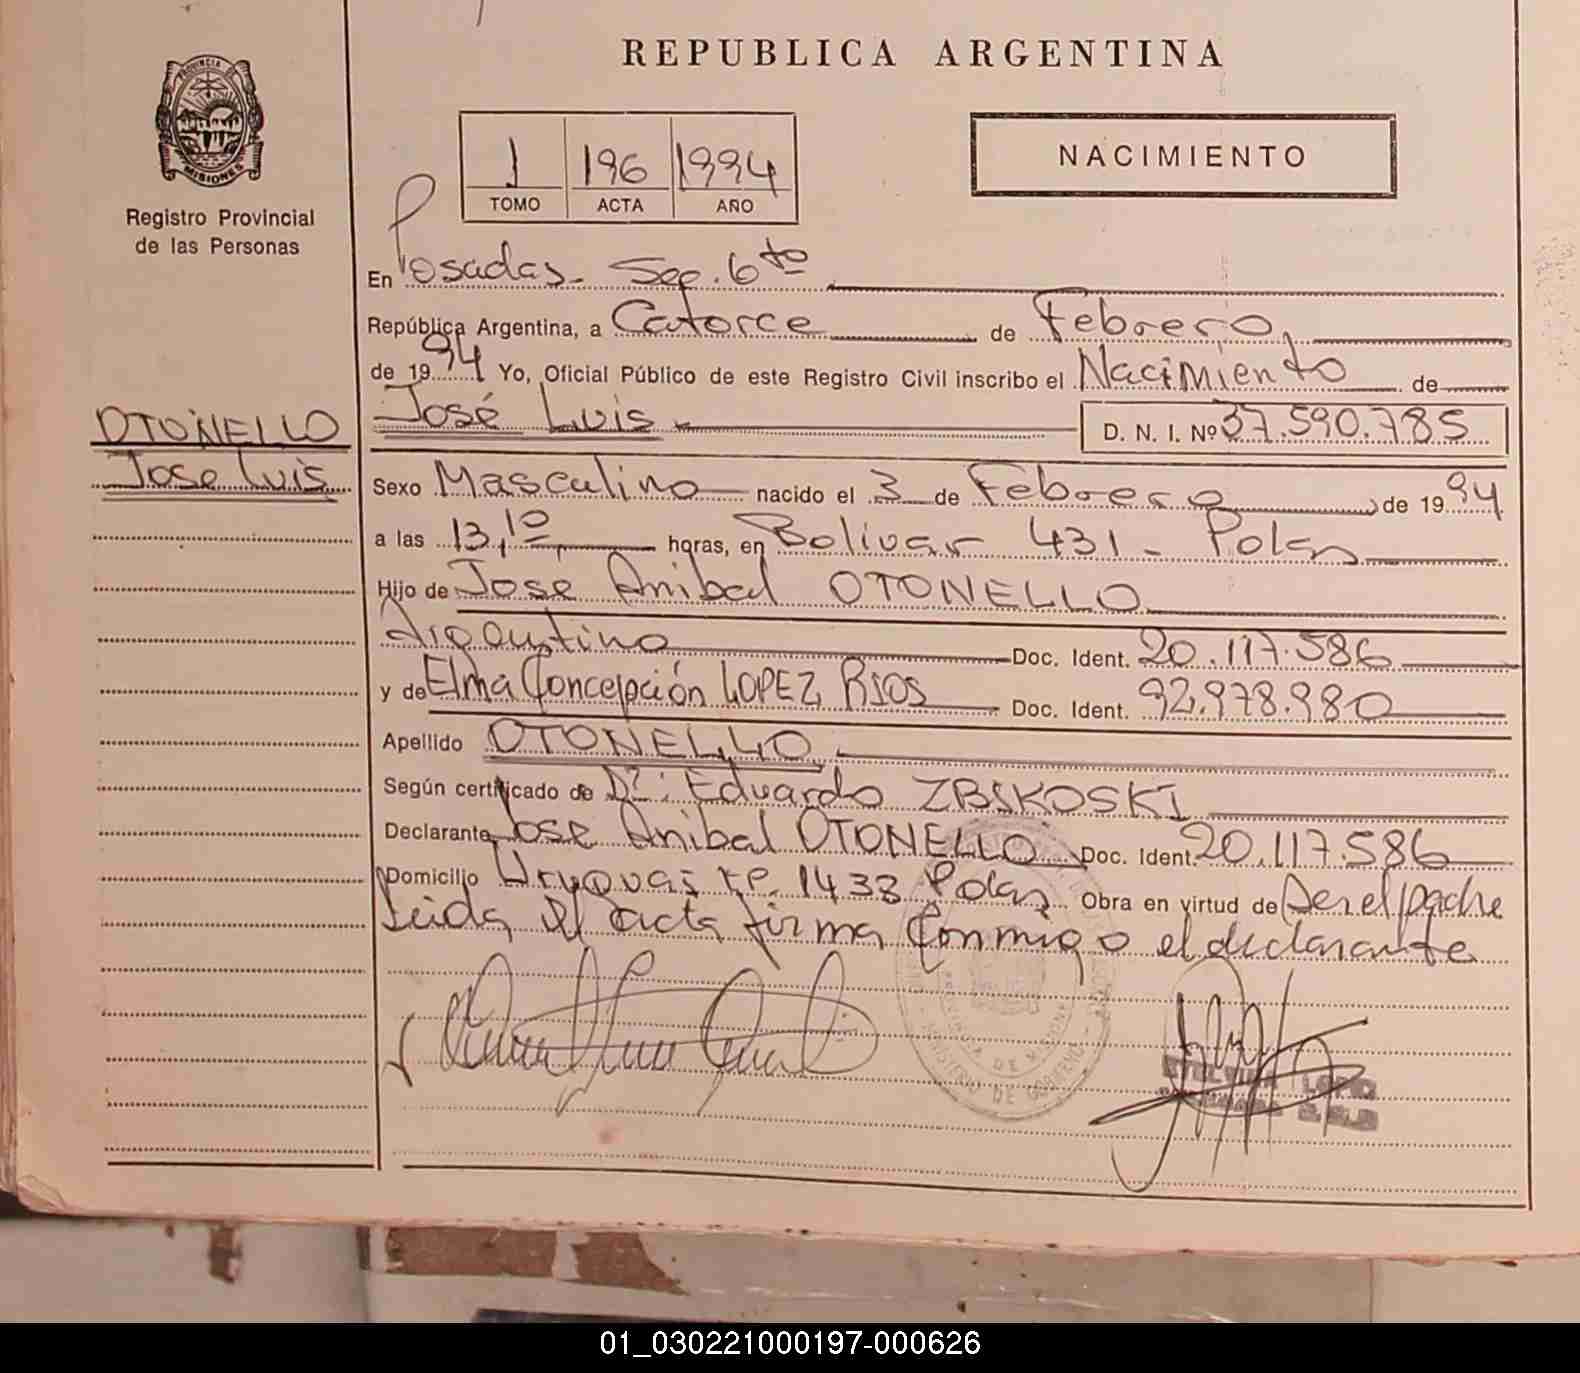 REPUBLICA ARGENTINA
PROVINCIA DE
MISIONES
Registro Provincial
de las Personas
1 196 1994
TOMO ACTA AÑO
NACIMIENTO
En Posadas - Sec. 6to
República Argentina, a Catorce de Febrero,
de 1994 Yo, Oficial Público de este Registro Civil inscribo el Nacimiento de
José Luis - D. N. I. Nº 37.590.785
OTONELLO
Jose Luis
Sexo Masculino nacido el 3 de Febrero de 1994
a las 13,10 horas, en Bolivar 431 - Pdas
Hijo de José Anibal OTONELLO
Argentino Doc. Ident. 20.117.586
y de Elma Concepción LOPEZ RIOS Doc. Ident. 92.978.980
Apellido OTONELLO
Según certificado de Dr: Eduardo ZBIKOSKI
Declarante Jose Anibal OTONELLO Doc. Ident. 20.117.586
Domicilio 1438 Pdas Obra en virtud de Ser el padre
Leida el acta firma conmigo el declarante
PROVINCIA DE MISIONES
MINISTERIO DE GOBIERNO
01_030221000197-000626